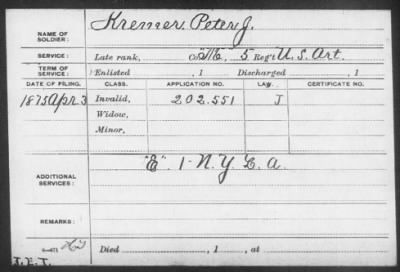 NAME OF SOLDIER: Kremer, Peter J.
SERVICE: Late rank, Co. M, 5 Reg't U.S. Art.
TERM OF SERVICE: Enlisted , 1 Discharged , 1
DATE OF FILING. CLASS. APPLICATION NO. LAW. CERTIFICATE NO.
1875 Apr. 3 Invalid, 202.551 J
Widow,
Minor,
ADDITIONAL SERVICES: "E" 1 - N.Y. L. A.
REMARKS:
Died , 1 , at
J.E.T.